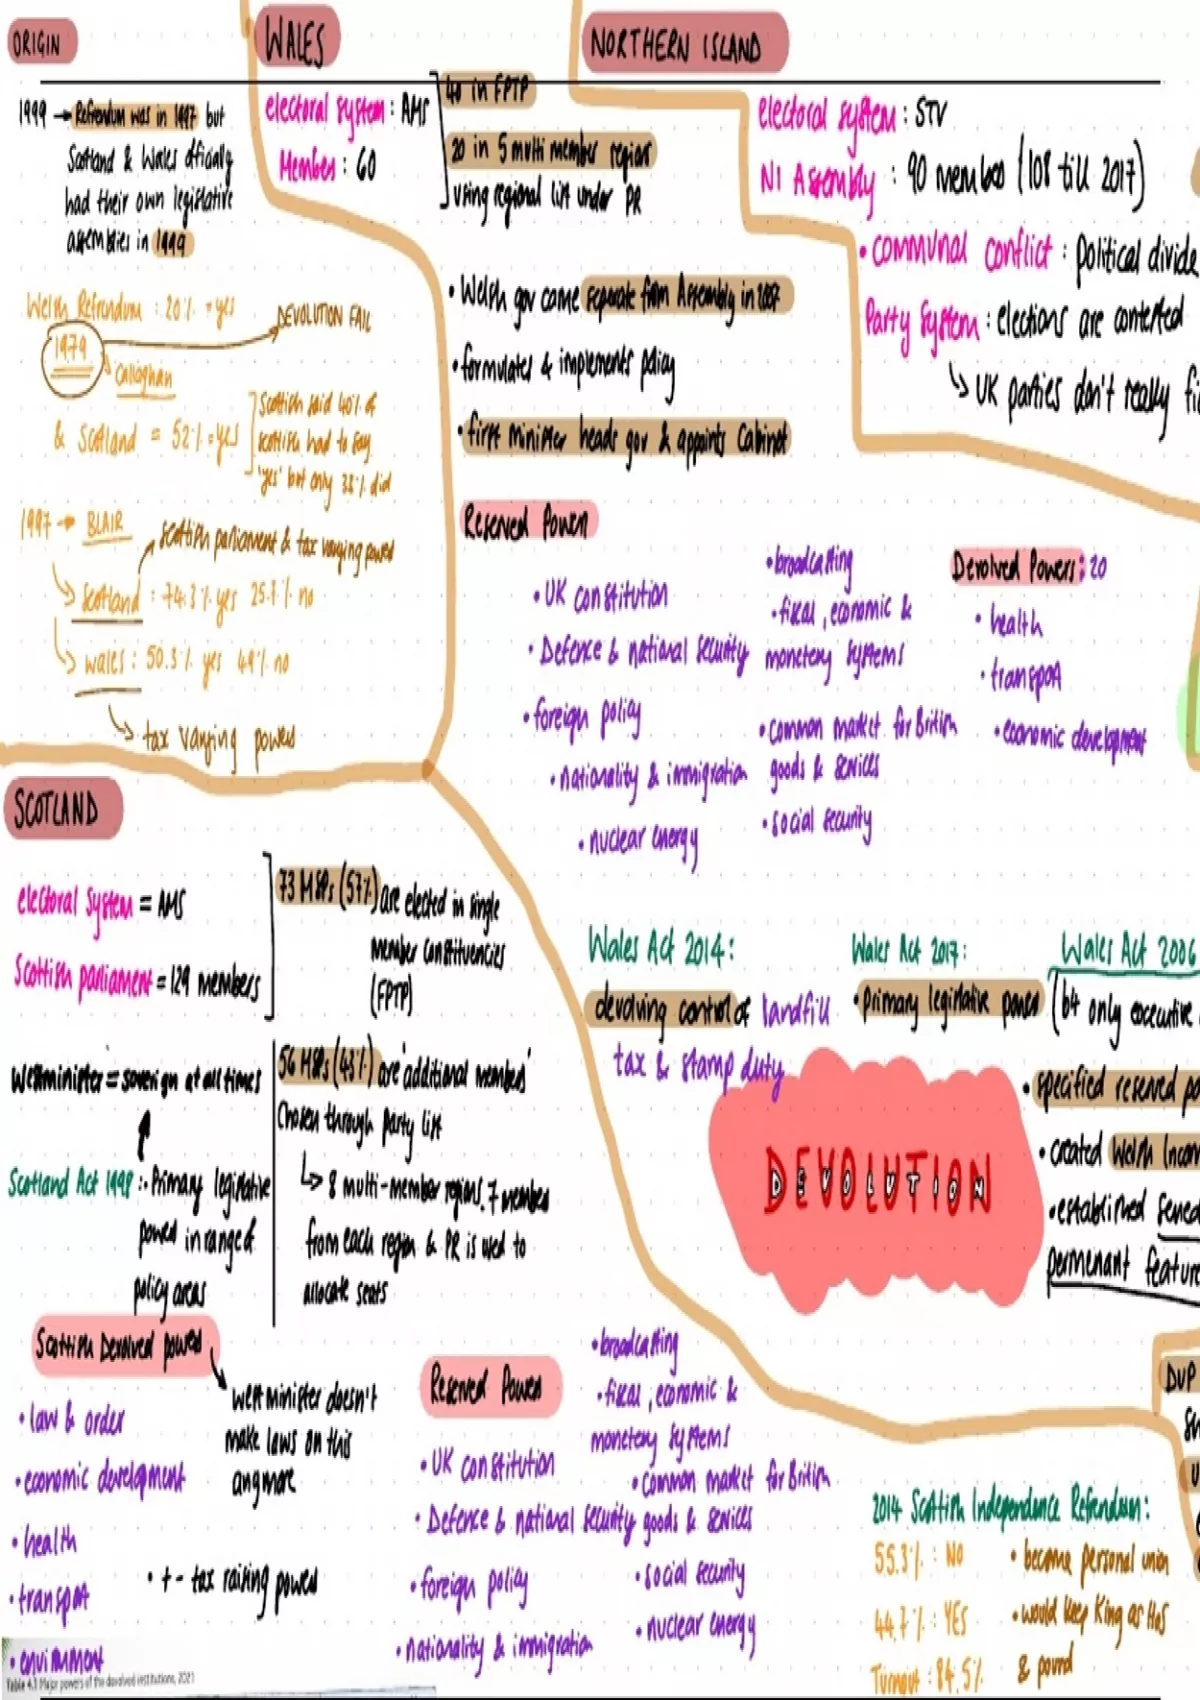 ORIGIN
1999 → Refrendum was in 1997 but
Scotland & Wales officially
had their own legislative
assemblies in 1999
Welsh Refrendum : 20% = yes
1979
→ DEVOLUTION FAIL
Callaghan
& Scotland = 52% = yes
Scottish said 40% of
scottish had to say
'yes' but only 33% did
1997 → BLAIR
scottish parliament & tax varying power
↳ Scotland : 74.3% yes 25.7% no
↳ wales : 50.3% yes 49% no
↳ tax varying powers
WALES
electoral system : AMS
Members : 60
40 in FPTP
20 in 5 multi member regions
using regional list under PR
• Welsh gov came seperate from Assembly in 2007
• formulates & implements policy
• first minister heads gov & appoints Cabinet
Reserved Powers
• UK constitution
• Defence & national security
• foreign policy
• nationality & immigration
• nuclear energy
• broadcasting
• fiscal, economic &
monetery systems
• common market for British
goods & services
• social security
Devolved Powers: 20
• health
• transport
• economic development
Wales Act 2014:
devolving control of landfill
tax & stamp duty
Wales Act 2017:
• Primary legislative powers
Wales Act 2006
(b4 only executive
• specified reserved po
• created Welsh Incom
• established Sened
permenant feature
NORTHERN ISLAND
electoral system : STV
NI Assembly : 90 members (108 till 2017)
• communal conflict : political divide
Party system : elections are contested
↳ UK parties don't really fi
DEVOLUTION
SCOTLAND
electoral system = AMS
Scottish parliament = 129 members
73 MSPs (57%) are elected in single
member constituencies
(FPTP)
Westminister = soverign at all times
Scotland Act 1998 :- Primary legislative
power in range of
policy areas
56 MSPs (43%) are 'additional members'
Chosen through party list
↳ 8 multi-member regions. 7 members
from each region & PR is used to
allocate seats
Scottish Devolved powers
westminister doesn't
make laws on this
anymore
• law & order
• economic development
• health
• transport
• environment
• + - tax raising powers
Reserved Powers
• UK constitution
• Defence & national security
• foreign policy
• nationality & immigration
• broadcasting
• fiscal, economic &
monetery systems
• common market for British
goods & services
• social security
• nuclear energy
DUP
2014 Scottish Independence Refrendum:
55.3% : NO
44.7% : YES
Turnout : 84.5%
• become personal union
• would keep King as HoS
& pound
Table 4.1 Major powers of the devolved institutions, 2021